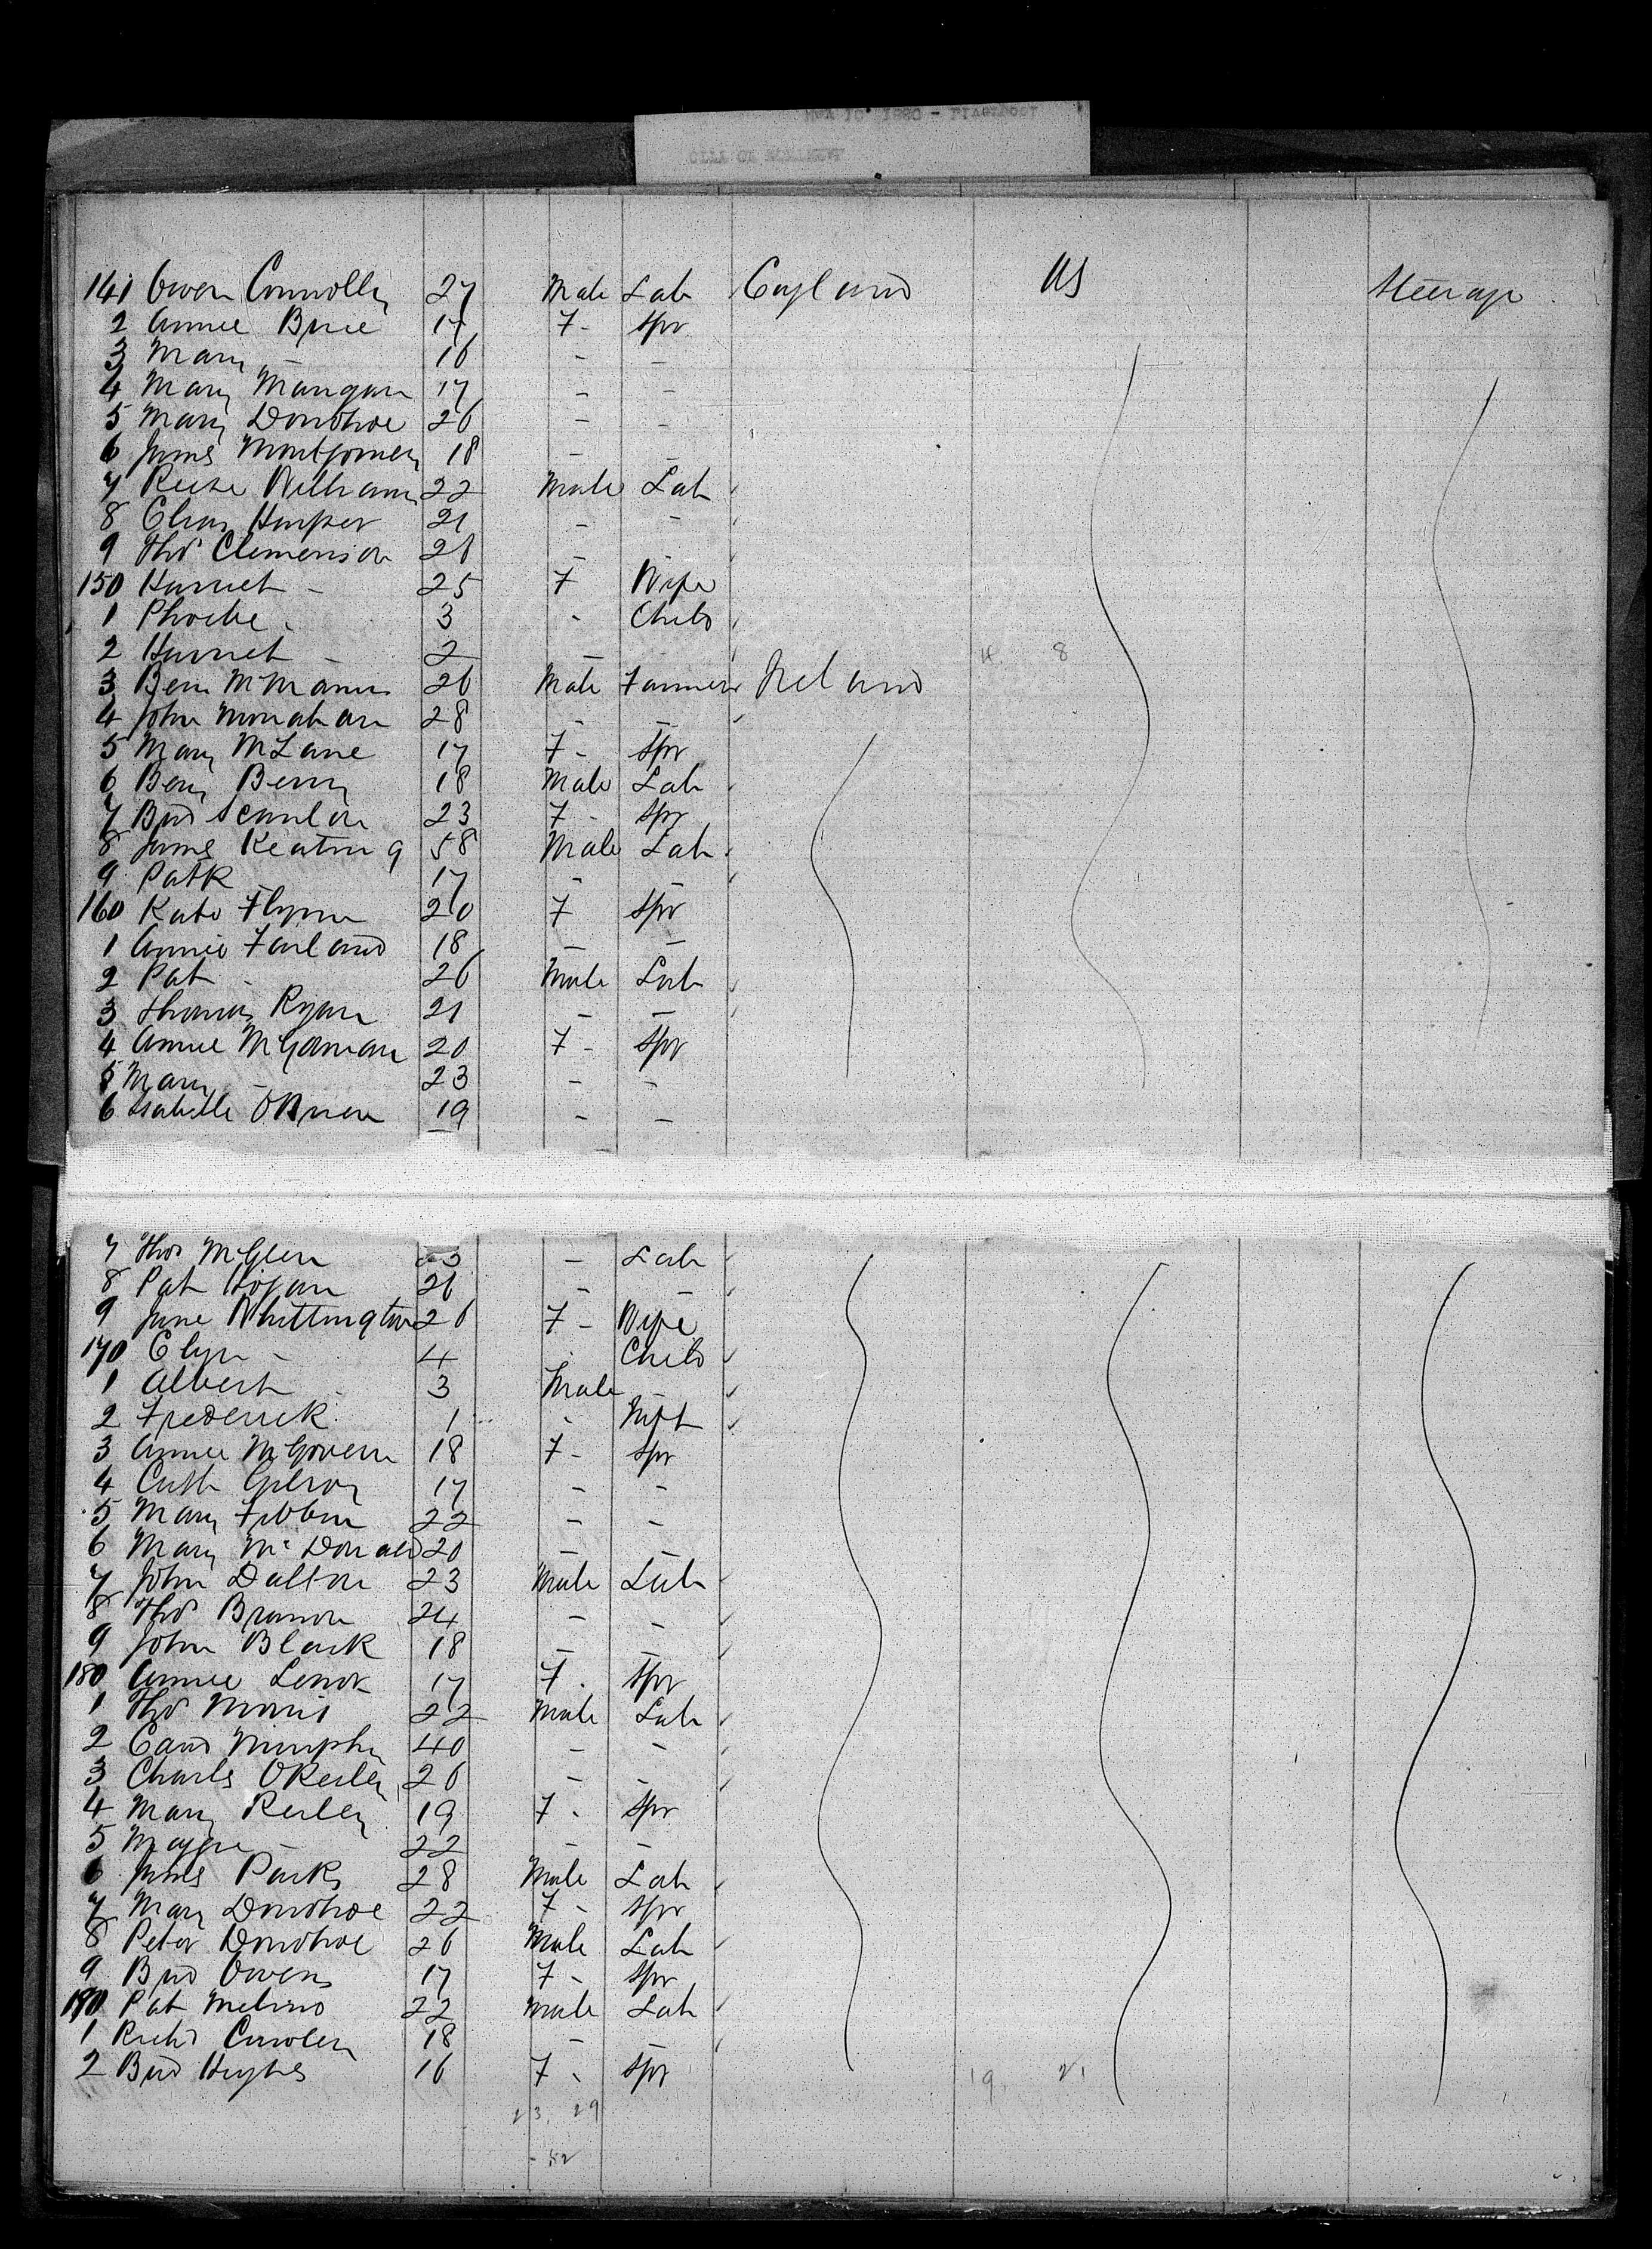 141 Owen Connolly 27 Male Lab England US Steerage
2 Annie Brie 17 F - Spr
3 Mary - 16 - -
4 Mary Mangan 17 - -
5 Mary Donohoe 26 - -
6 James Montgomery 18 - -
7 Reese Williams 22 Male Lab
8 Elias Harper 21 - -
9 Thos Clemenson 26 - -
150 Harriet - 25 F Wife
1 Phoebe - 3 - Child
2 Harriet - 2 - -
3 Bern McManus 26 Male Farmer Ireland
4 John Monahan 28 - -
5 Mary McLane 17 F - Spr
6 Benj Berry 18 Male Lab
7 Brid Scanlon 23 F - Spr
8 James Keating 58 Male Lab
9 Patk - 17 - -
160 Kate Flynn 20 F Spr
1 Annie Farland 18 - -
2 Pat - 26 Male Lab
3 Thomas Ryan 21 - -
4 Annie McGowan 20 F - Spr
5 Mary - 23 - -
6 Isabelle OBrien 19 - -
7 Thos McGlen - Lab
8 Pat Hogan 26 - -
9 Jane Whittington 26 F - Wife
170 - 4 Child
1 Albert - 3 Male -
2 Frederick 1 - Inft
3 Annie McGovern 18 F - Spr
4 Cath Gilroy 17 - -
5 Mary Fibbin 22 - -
6 Mary McDonald 20 - -
7 John Dalton 23 Male Lab
8 Thos Brannon 24 - -
9 John Black 18 - -
180 Annie Lenox 17 F. Spr
1 Thos Morris 22 Male Lab
2 Edwd Murphy 40 - -
3 Charles OReiley 26 - -
4 Mary Reiley 19 F - Spr
5 Maggie - 22 - -
6 James Parks 28 Male Lab
7 Mary Donohoe 22 F - Spr
8 Peter Donohoe 26 Male Lab
9 Brid Owens 17 F - Spr
190 Pat 22 Male Lab
1 Richd 18 - -
2 Brid Hughes 16 F - Spr
23. 29